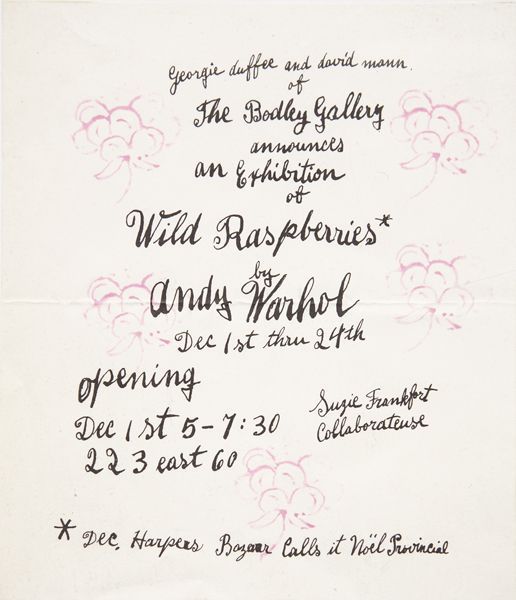 Georgie duffee and david mann.
of
The Bodley Gallery
announces
an Exhibition
of
Wild Raspberries*
by
andy Warhol
Dec 1st thru 24th
opening
Dec 1st 5-7:30
223 east 60
Suzie Frankfort
Collaborateuse
* Dec. Harpers Bazaar Calls it Noël Provincial